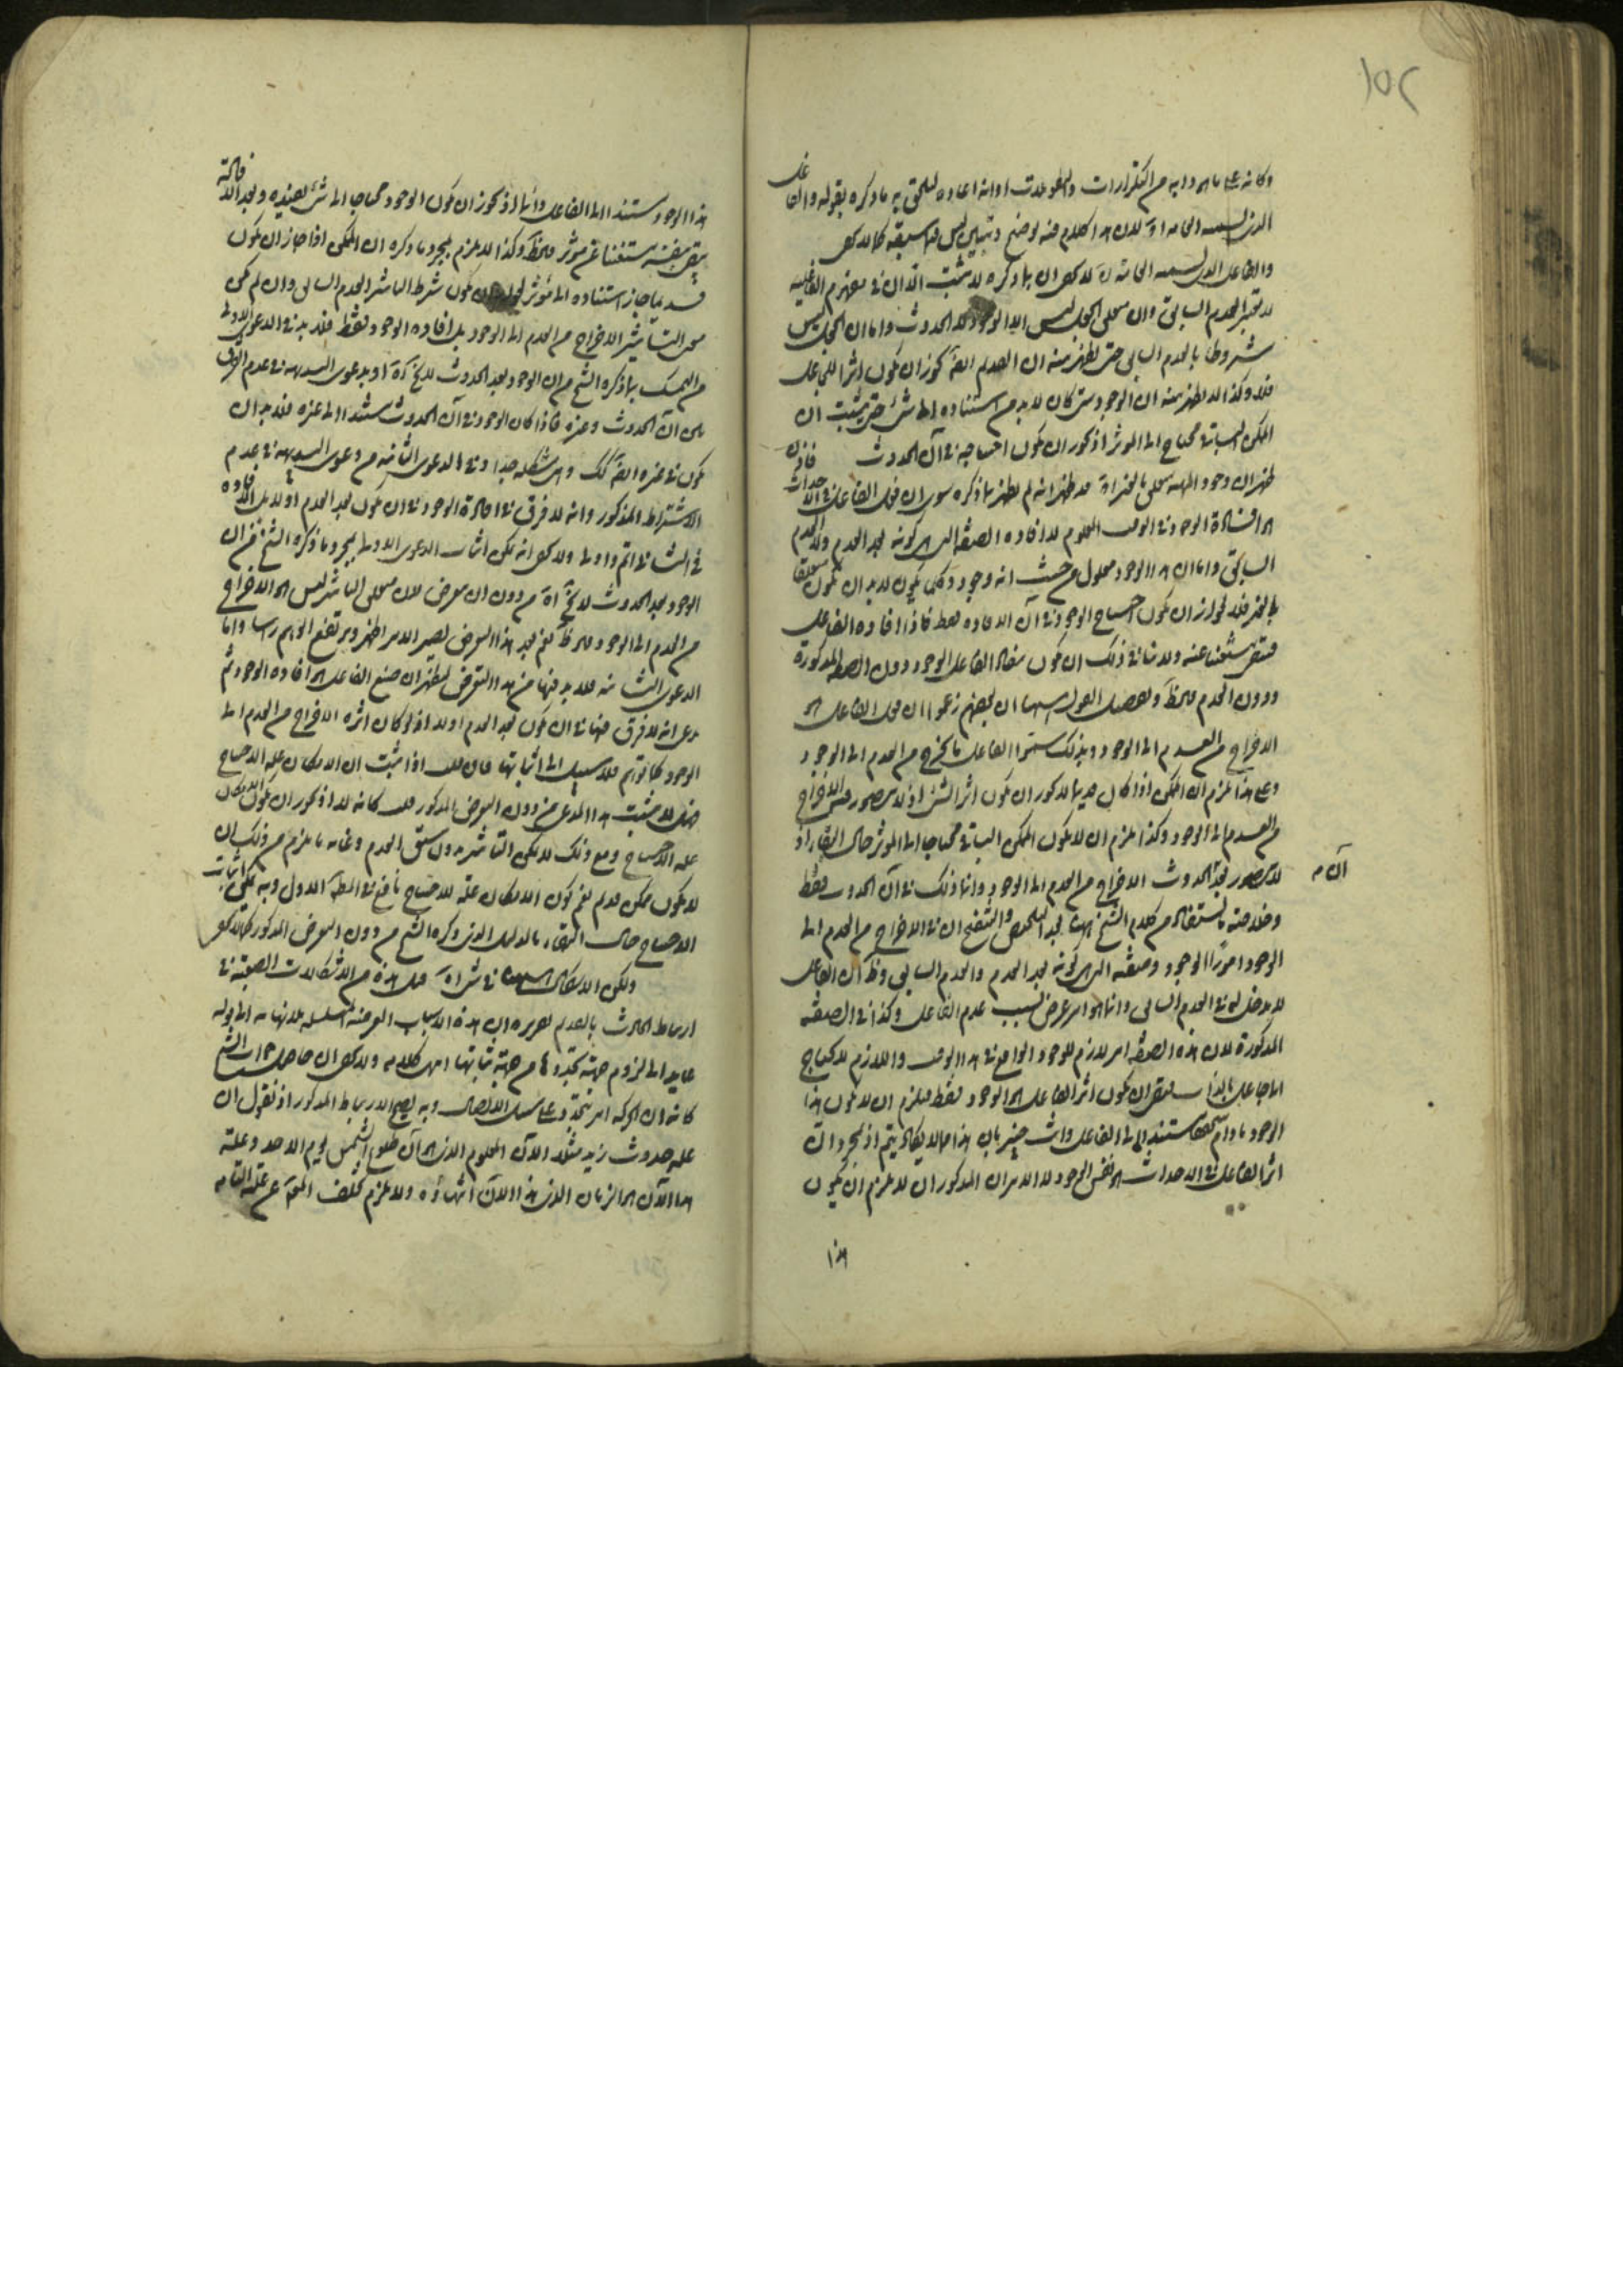 ١٥٢
وكانه على ما هو دابه من التكرارات والتطويلات او انه اعاده ليلحق به ما ذكره بقوله والفاعل
الذى يسميه العامة لان هذا الكلام منه توضيح وتبيين ليس في سبقه كما لا يخفى
والفاعل الذى يسميه العامة لا يخفى ان ما ذكره لا يثبت الا ان في مفهوم الفاعلية
لا يعتبر العدم السابق وان متعلق الجعل ليس الا الوجود بعد الحدوث واما ان الجعل ليس
مشروطا بالعدم السابق حتى يظهر منه ان القديم ايضا يجوز ان يكون اثرا للجاعل
فلا وكذا لا يظهر منه ان الوجود متى كان لا بد من استناده الى شئ حتى يثبت ان
الممكن الباقى محتاج الى الموثر اذ يجوز ان يكون احتياجه في آن الحدوث
ظهر ان وجود المهية متعلق بالغير قد ظهر انه لم يظهر بما ذكره سوى ان فعل الفاعل في الاحداث
هو افادة الوجود في الوقت المعلوم لا افاده الصفة التى هى كونه بعد العدم ولا العدم
السابق واما ان هذا الوجود معلول من حيث انه وجود ممكن يكون لا بد ان يكون متعلقا
بالغير فلا لجواز ان يكون احتياج الوجود في آن الافاده فقط فاذا افاده الفاعل
فبقى مستغنيا عنه ولا ينافي ذلك ان يكون مفاد الفاعل الوجود دون الصفة المذكورة
ودون العدم ملاحظ وتفصيل القول هيهنا ان بعضهم زعموا ان فعل الفاعل هو
الاخراج من العدم الى الوجود وبذلك سموا الفاعل ما يخرج من العدم الى الوجود
وعلى هذا يلزم ان الممكن اذا كان قديما لا يجوز ان يكون اثرا لشئ اذ لا يتصور فيه الاخراج
من العدم الى الوجود وكذا يلزم ان لا يكون الممكن الباقى محتاجا الى الموثر حال البقاء اذ
لا يتصور بعد الحدوث الاخراج من العدم الى الوجود وانما ذلك في آن الحدوث فقط
آن م
وخلاصة ما يستفاد من كلام الشيخ هيهنا بعد التلخيص والتنقيح ان في الاخراج من العدم الى
الوجود امورا الوجود وصفته التى هى كونه بعد العدم والعدم السابق وظ ان الفاعل
لا يدخل له في العدم السابق وانما هو امر عرض بسبب عدم الفاعل وكذا في الصفة
المذكورة لان هذه الصفة امر لازم للوجود الواقع في هذا الوقت واللازم لا يحتاج
الى جاعل بالذات فبقى ان يكون اثر الفاعل هو الوجود فقط فيلزم ان لا يكون هذا
الوجود ما دام متحققا مستندا الى الفاعل وانت خبير بان هذا مما لا يكاد يتم اذ بمجرد ان
اثر الفاعل في الاحداث هو نفس الوجود لا الامران المذكوران لا يلزم ان يكون
هذا
هذا الوجود مستندا الى الفاعل دائما اذ يجوز ان يكون الوجود محتاجا الى شئ يفيده وبعد الافادة
يبقى بنفسه مستغنيا عن موثر ملاحظ وكذا لا يلزم بمجرد ما ذكره ان الممكن اذا جاز ان يكون
قديما جاز استناده الى موثر لجواز ان يكون شرط التاثير العدم السابق وان لم يكن
معنى التاثير الاخراج من العدم الى الوجود بل افاده الوجود فقط فلا بد في الدعوى الاولى
من التمسك بما ذكره الشيخ من ان الوجود بعد الحدوث لا يخ آه او بدعوى البديهة في عدم الفرق
بين آن الحدوث وغيره فاذا كان الوجود في آن الحدوث مستندا الى غيره فلا بد ان
يكون في غيره ايضا كك وهى مشكلة جدا وفي الدعوى الثانية من دعوى البديهة في عدم
الاشتراط المذكور وانه لا فرق في افادة الوجود في ان يكون بعد العدم او لا بل الافاده
في الثانى اتم واولى ولا يخفى انه يمكن اثبات الدعوى الاولى بمجرد ما ذكره الشيخ من ان
الوجود بعد الحدوث لا يخ آه من دون ان يتعرض لان متعلق التاثير ليس هو الاخراج
من العدم الى الوجود ملاحظ نعم بعد هذا التعرض يصير الامر اظهر ويرتفع الوهم راسا واما
الدعوى الثانية فلا بد فيها من هذا التعرض ليظهر ان صنع الفاعل هو افاده الوجود ثم
يدعى انه لا فرق فيها في ان يكون بعد العدم او لا اذ لو كان اثره الاخراج من العدم الى
الوجود كما توهم فلا سبيل الى اثباتها فان قلت اذا ثبت ان الامكان علة الاحتياج
فقد ثبت هذا المدعى من دون التعرض المذكور قلت كانه لا اذ يجوز ان يكون الامكان
علة الاحتياج ومع ذلك لا يمكن التاثير بدون سبق العدم وغاية ما يلزم من ذلك ان
لا يكون ممكن قديم نعم كون الامكان علة للاحتياج نافع في المط الاول وبه يمكن اثبات
الاحتياج حال البقاء بالدليل الذى ذكره الشيخ من دون التعرض المذكور كما لا يخفى
ولكن الاشكال هيهنا في شئ آه قيل هذه من الاشكالات الصعبة في
ارتباط الحادث بالقديم تقريره ان هذه الاسباب العرضية المتسلسلة بلا نهاية الى قوله
عايد الى لزوم جهة تجددها من جهة ثباتها انتهى كلامه ولا يخفى ان حاصل جواب الشيخ
كانه ان الحركة امر تجددى على سبيل الاتصال وبه يصح الارتباط المذكور اذ نقول ان
علة حدوث زيد مثلا الآن المعلوم الذى هو آن طلوع الشمس يوم الاحد وعلة
هذا الآن هو الزمان الذى هذا الآن انتهاؤه ولا يلزم تخلف المعلول عن علته التامه